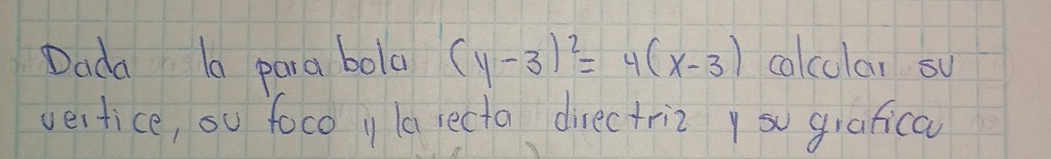 Dada la para bola (y-3)²= 4(x-3) calcular su
vertice, su foco y la recta directriz y su grafica